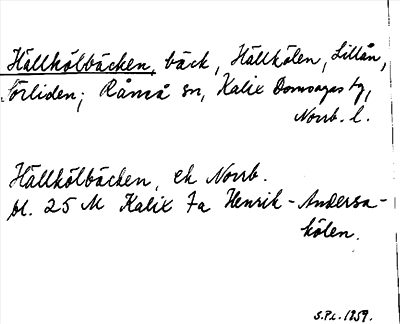 Hällkölbäcken, bäck, Hällkölen, Lillån,
Örliden; Råneå sn, Kalix Domsagas tg,
Norrb. l.
Hällkölbäcken, ek Norrb.
bl. 25 M Kalix 7a Henrik-Andersa-
kölen.
S.P.L. 1959.